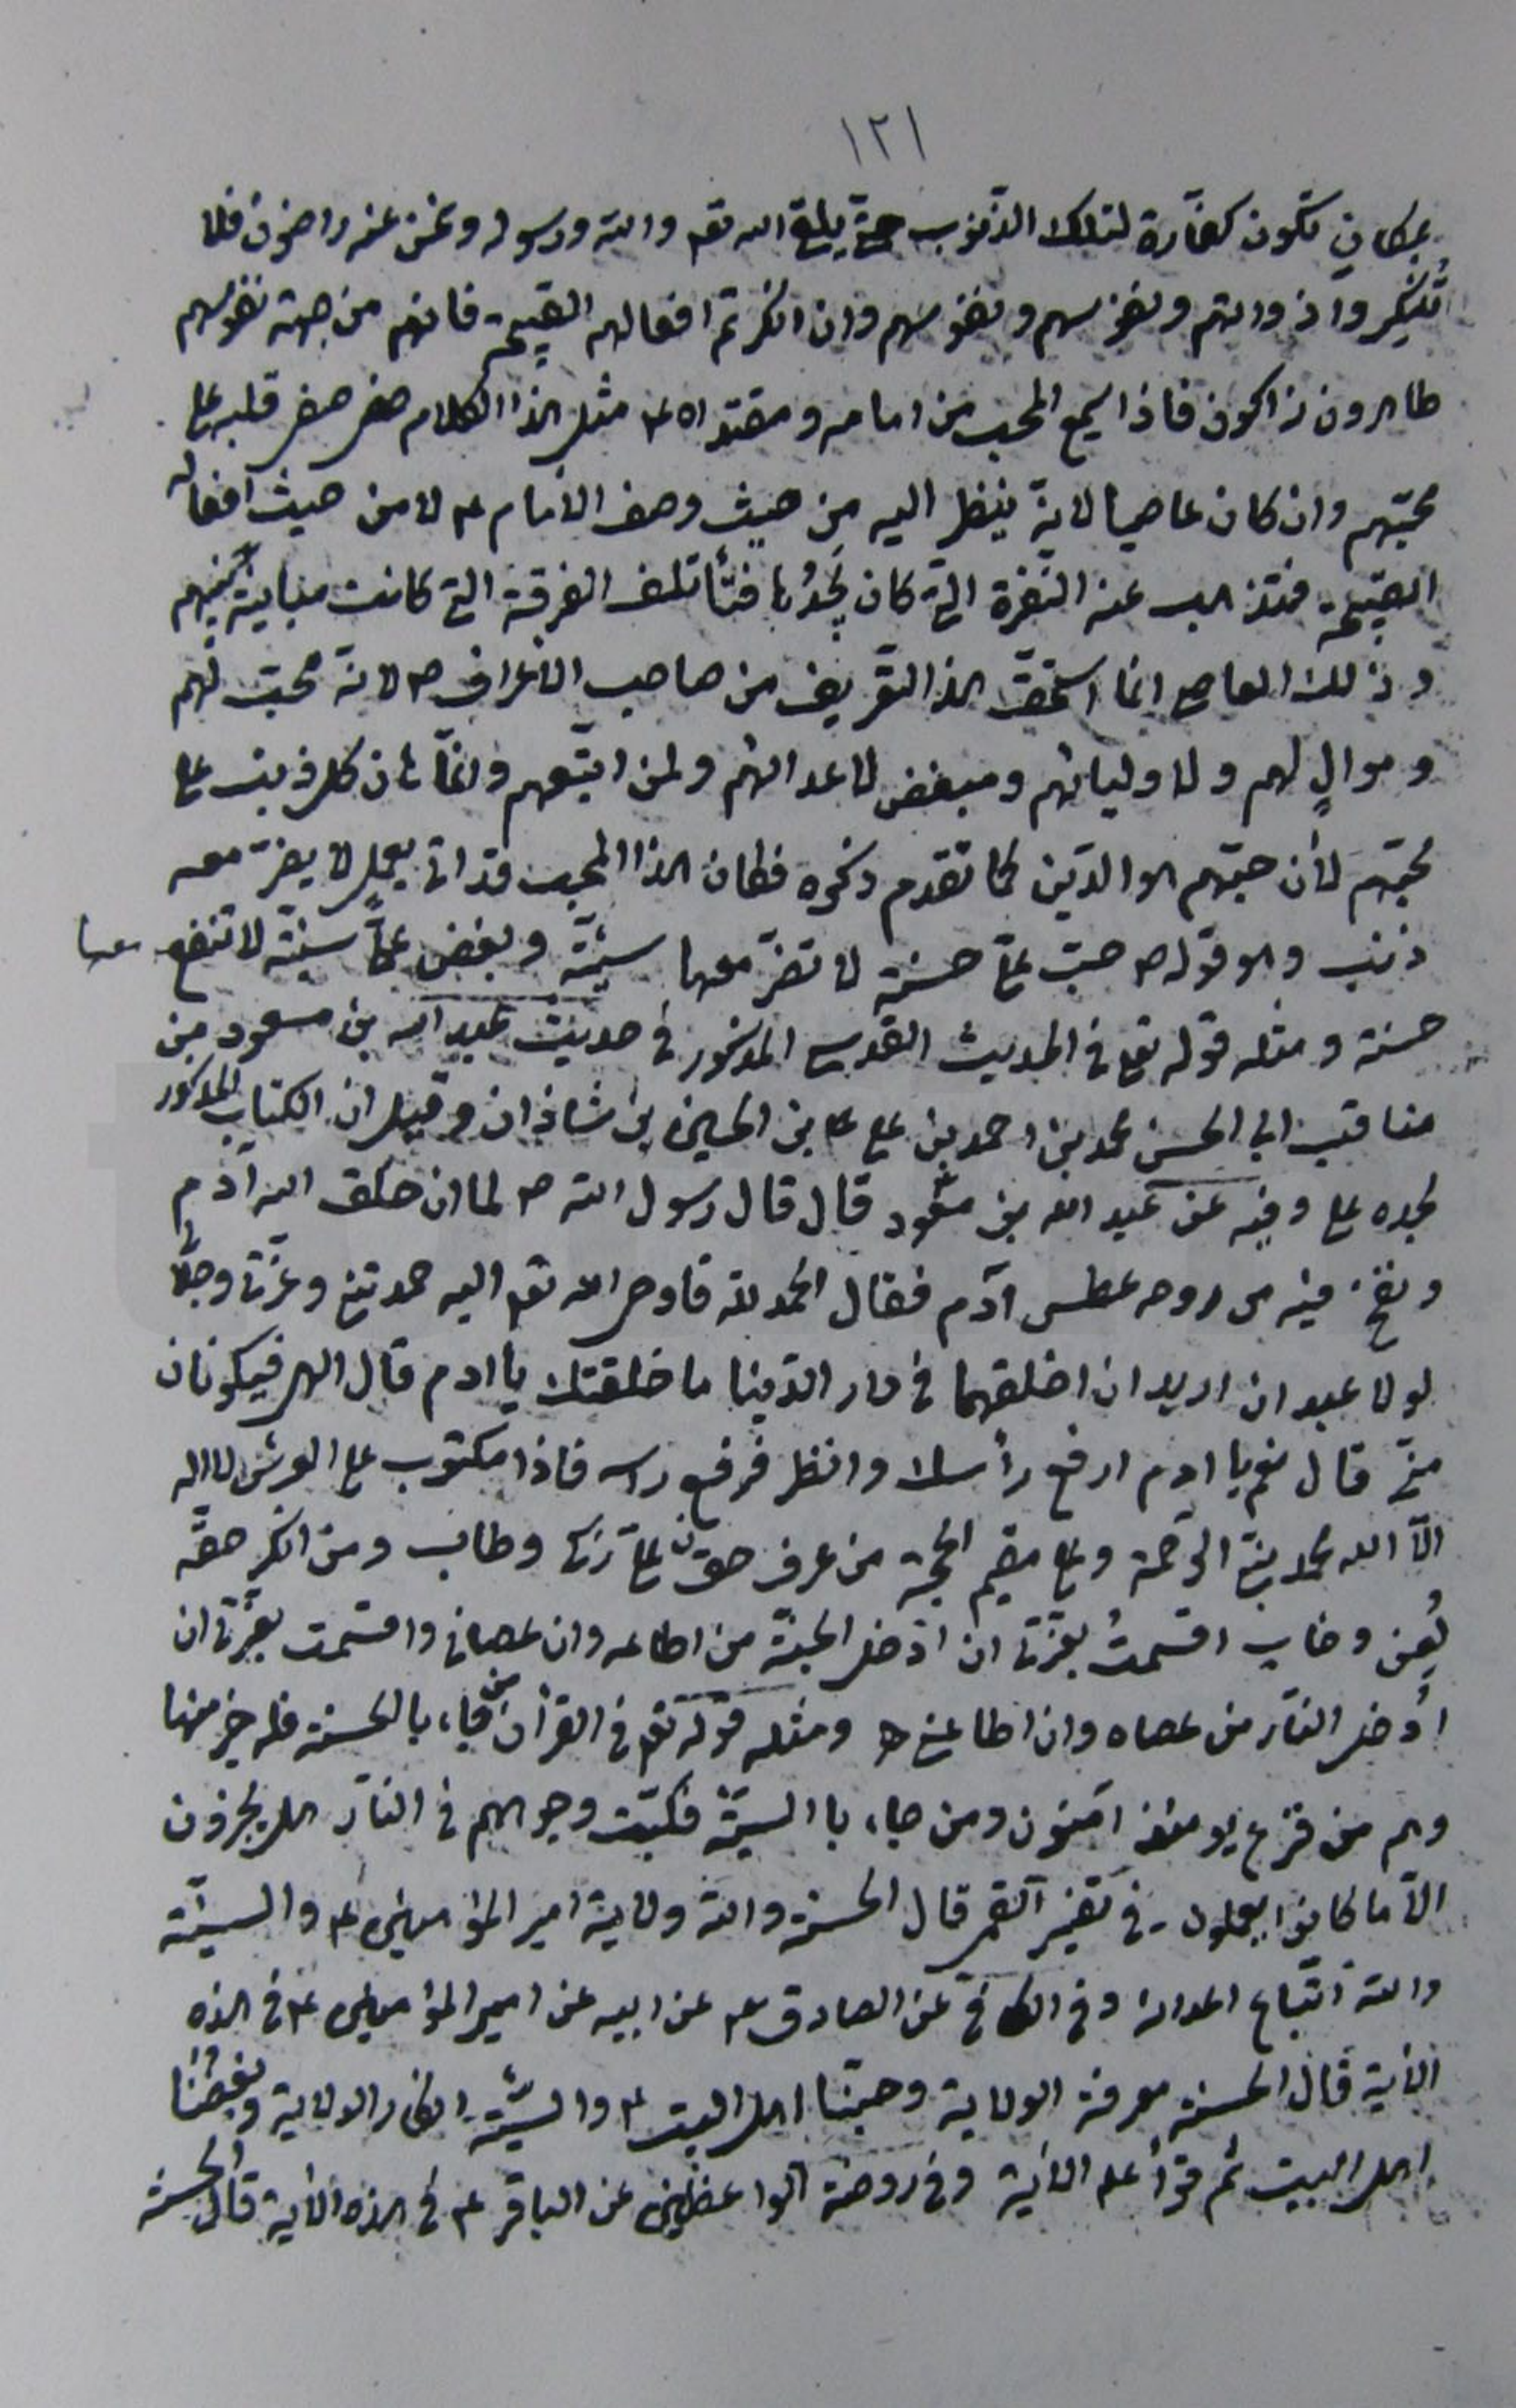 ١٢١
بمكان تكون كفارة لتلك الذنوب حتى يلقى الله تعه والله ورسوله ونحن عنه راضون فلا
تنكروا ذواتهم ونفوسهم وان انكرتم افعالهم القبيحة فانهم من جهة نفوسهم
طاهرون زاكون فاذا سمع المحب من امامه ومقتداه ع مثل هذا الكلام صفر قلبه على
محبتهم وان كان عاصيا لانه ينظر اليه من حيث وصف الامام ع لا من حيث افعاله
القبيحة فتذهب عنه النفرة التي كان يجدها فتأتلف الفرقة التي كانت متباينة منهم
وذلك العاصي انما استحق هذا التعريف من صاحب الاعراف ص لانه محب لهم
وموالٍ لهم ولاوليائهم ومبغض لاعدائهم ولمن اتبعهم وانما هان كل ذنب على
محبتهم لأن حبتهم هو الدين كما تقدم ذكره فكان هذا المحب قد اتى بعمل لا يضر معه
ذنب وهو قوله ص حب علي حسنة لا تضر معها سيئة وبغض علي سيئة لا تنفع معها
حسنة ومثله قوله تعالى في الحديث القدسي المذكور في حديث عبد الله بن مسعود من
مناقب ابي الحسن محمد بن احمد بن علي بن الحسين بن شاذان وقيل ان الكتاب المذكور
لجده علي وفيه عن عبد الله بن مسعود قال قال رسول الله ص لما ان خلق الله آدم
ونفخ فيه من روحه عطس آدم فقال الحمد لله فاوحى الله تعه اليه حمدتني وعزتي وجلالي
لولا عبدان اريد ان اخلقهما في دار الدنيا ما خلقتك يا ادم قال الهي فيكونان
مني قال نعم يا ادم ارفع رأسك وانظر فرفع راسه فاذا مكتوب على العرش لا اله
الّا الله محمد نبي الرحمة وعلي مقيم الحجة من عرف حق علي زكى وطاب ومن انكر حقه
لُعِن وخاب اقسمتُ بعزتي ان ادخل الجنّة من اطاعه وان عصاني واقسمت بعزتي ان
اُدخل النار من عصاه وان اطاعني ومثله قوله تعه في القرآن من جاء بالحسنة فله خير منها
وهم من فزع يومئذ آمنون ومن جاء بالسيئة فكبّت وجوههم في النار هل يجزون
الّا ما كانوا يعملون في تفسير القمي قال الحسنة والله ولاية امير المؤمنين ع والسيئة
والله اتباع اعدائه وفي الكافي عن الصادق ع عن ابيه عن امير المؤمنين ع في هذه
الآية قال الحسنة معرفة الولاية وحبّنا اهل البيت ع والسيئة انكار الولاية وبغضنا
اهل البيت ثم قرأ عليه الآية وفي روضة الواعظين عن الباقر ع في هذه الآية قال الحسنة